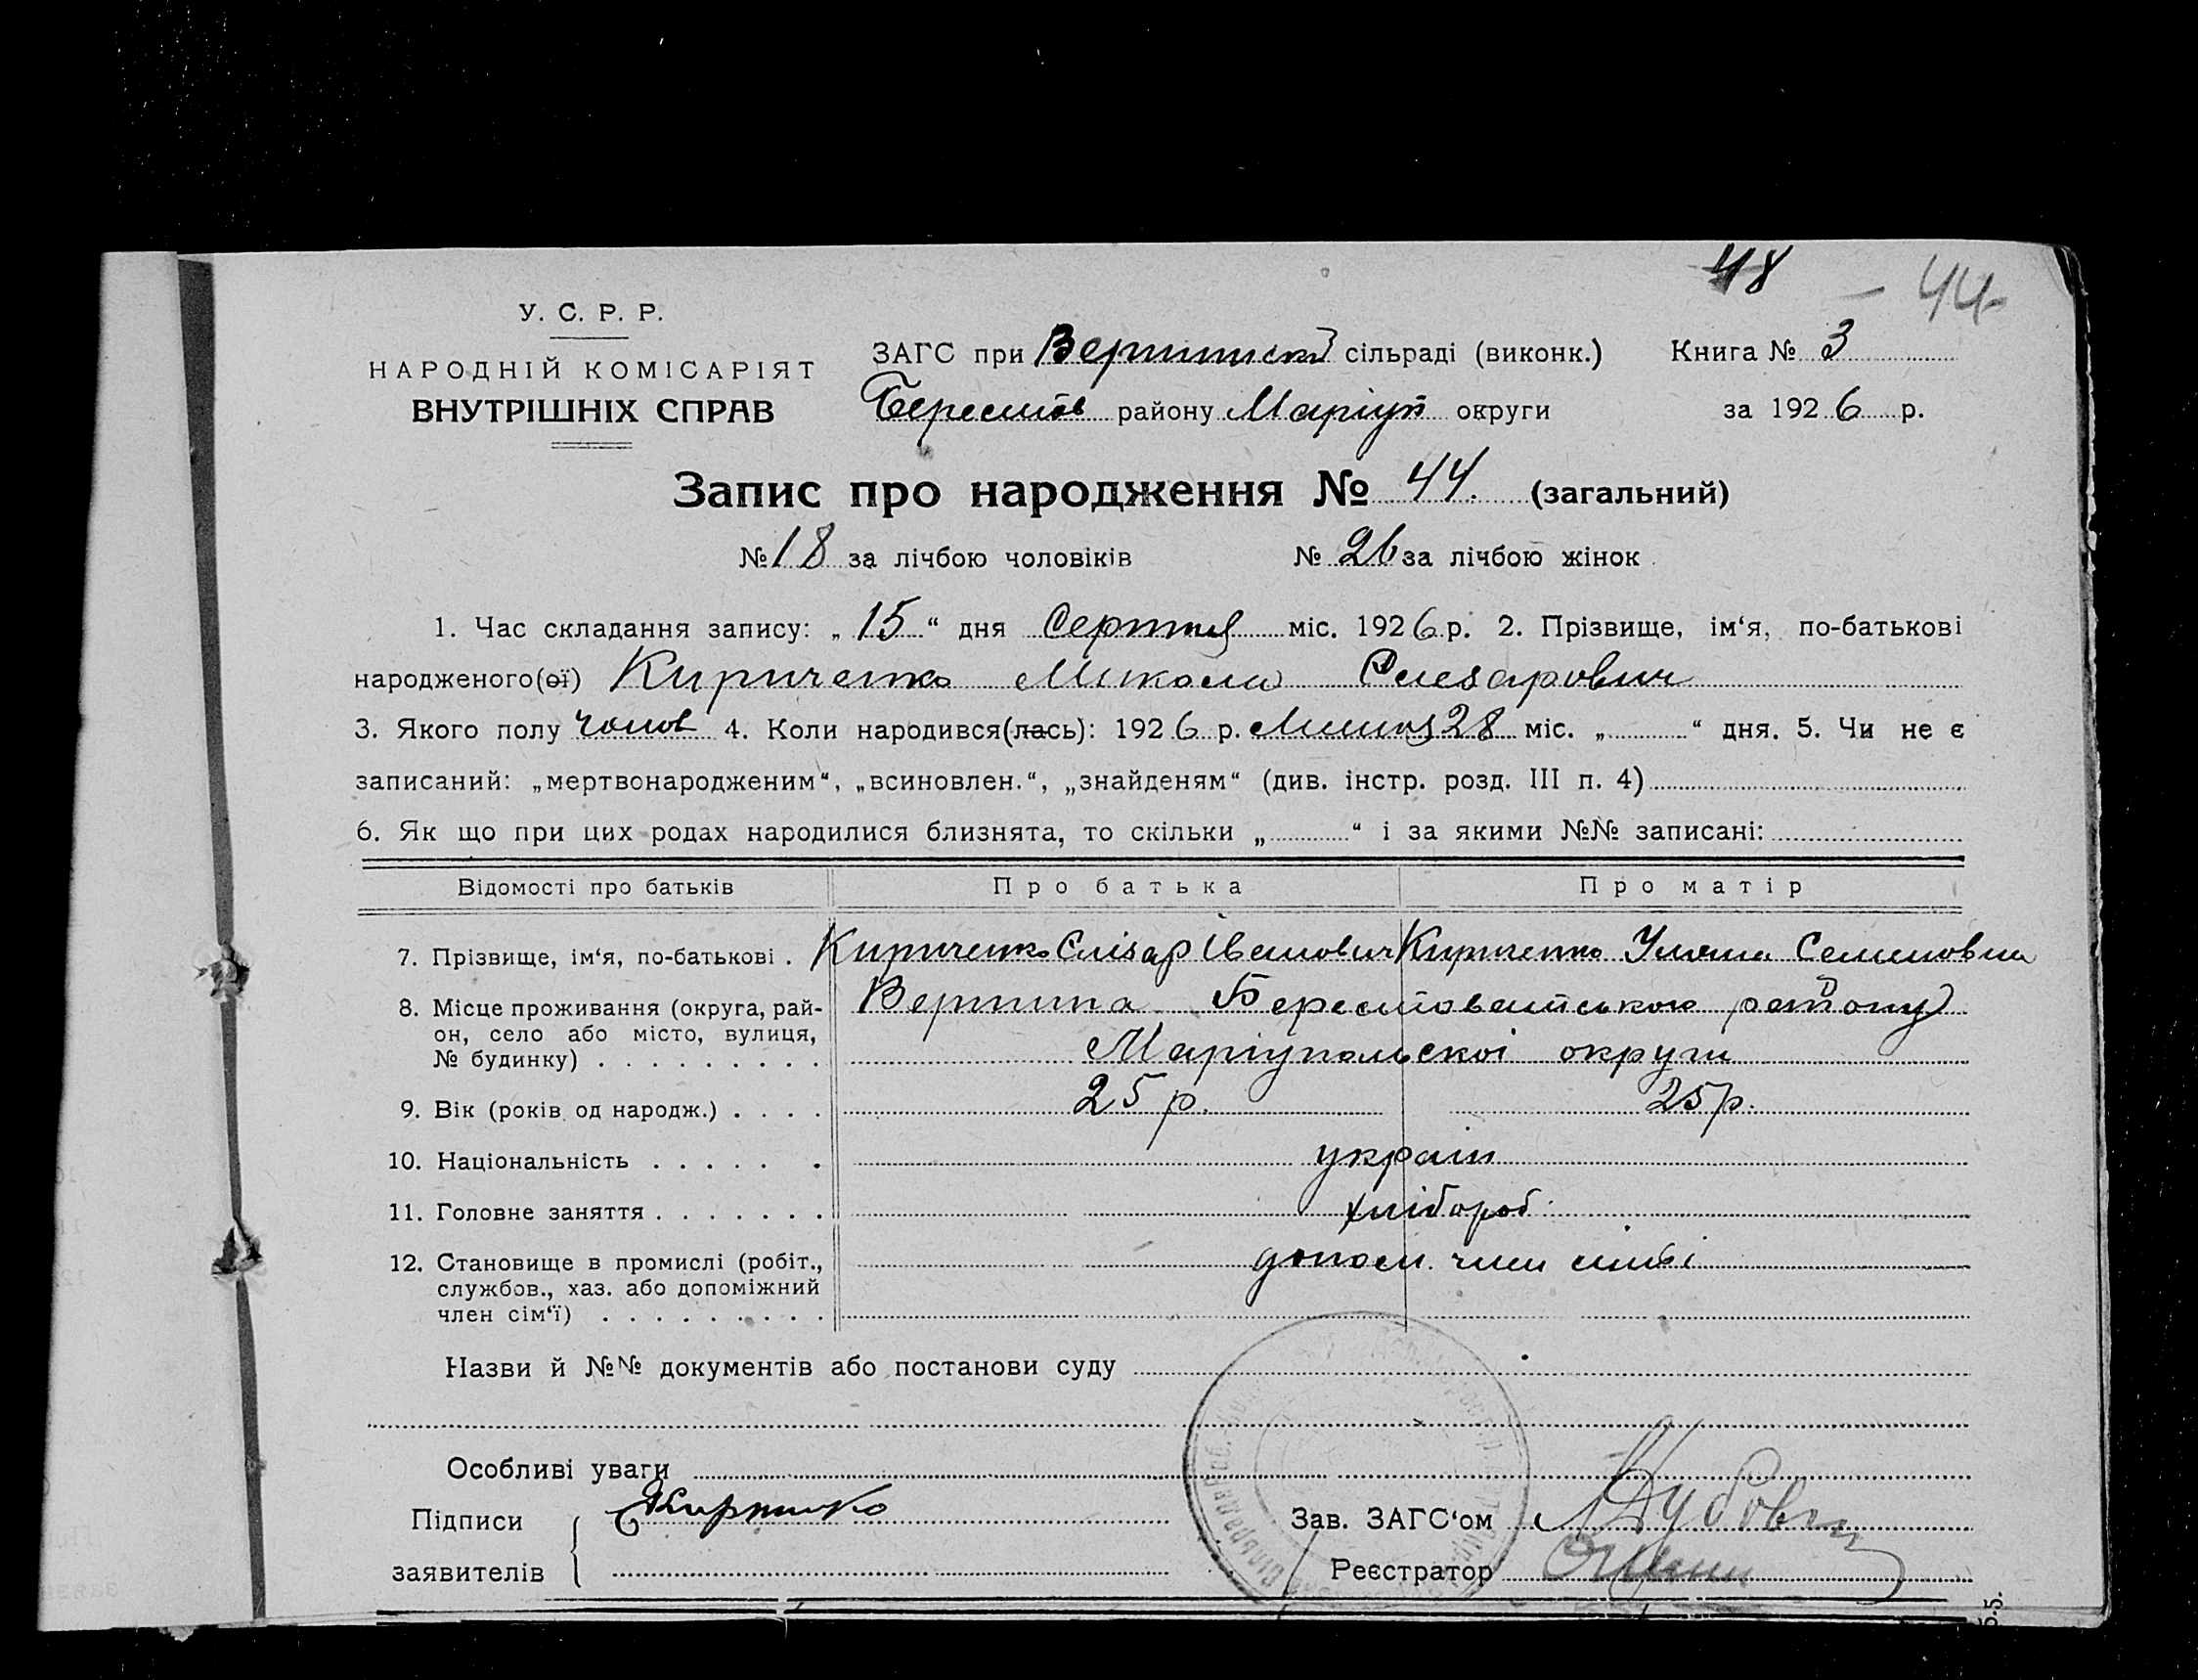 48 - 44
У. С. Р. Р.
НАРОДНІЙ КОМІСАРІЯТ
ВНУТРІШНІХ СПРАВ
ЗАГС при сільраді (виконк.) Книга № 3
Берестов району Маріуп округи за 1926 р.
Запис про народження № 44. (загальний)
№ 18 за лічбою чоловіків № 26 за лічбою жінок
1. Час складання запису: „ 15 “ дня Серпня міс. 1926 р. 2. Прізвище, ім‘я, по-батькові
народженого(ої) Кириченко Микола Єлезарович
3. Якого полу чолов 4. Коли народився(лась): 1926 р. Липня 28 міс. „ “ дня. 5. Чи не є
записаний: „мертвонародженим“, „всиновлен.“, „знайденям“ (див. інстр. розд. III п. 4)
6. Як що при цих родах народилися близнята, то скільки „ “ і за якими №№ записані:
Відомості про батьків Про батька Про матір
7. Прізвище, ім‘я, по-батькові . Кириченко Єлізар Іванович Кириченко Уляна Семеновна
8. Місце проживання (округа, рай- Вершина Берестовеитського району
он, село або місто, вулиця,
№ будинку) . . . . . . . . . Маріупольскоі округи
9. Вік (років од народж.) . . . . 25 р. 25 р.
10. Національність . . . . . . україн
11. Головне заняття . . . . . . . хлібороб
12. Становище в промислі (робіт., допом. член сімьі
службов., хаз. або допоміжний
член сім‘ї) . . . . . . . . .
Назви й №№ документів або постанови суду
Особливі уваги
Підписи Зав. ЗАГС‘ом
заявителів Реєстратор